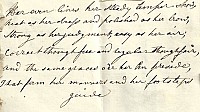 Her own lines her steady temper show,
Neat as her dress and polished as her brow,
Strong as her judgment, easy as her air,
Correct though free and regular though fair,
And the same graces o'er her pen preside,
That form her manners and her footsteps
guide